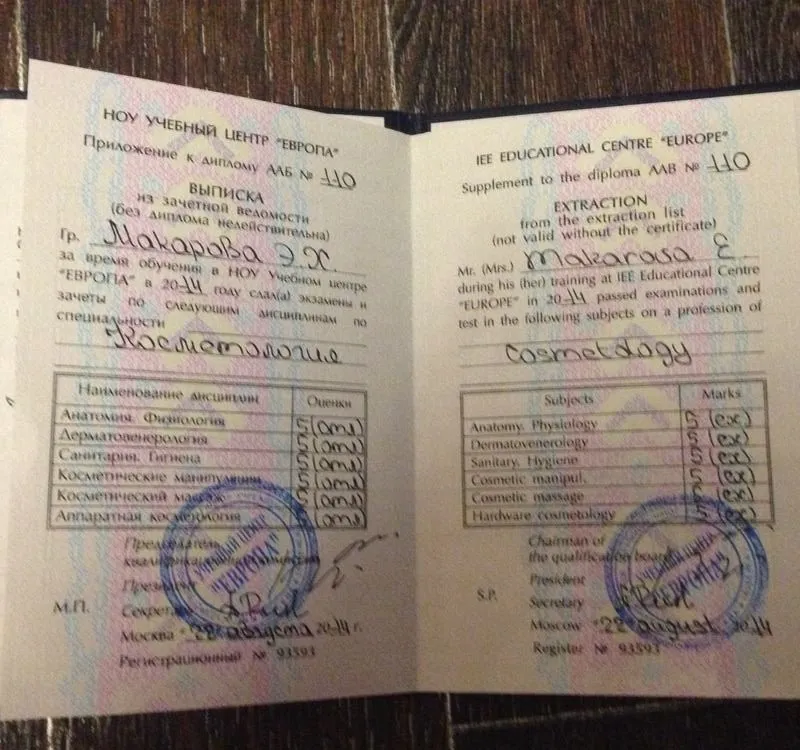 НОУ УЧЕБНЫЙ ЦЕНТР "ЕВРОПА"
Приложение к диплому ААБ № 110
ВЫПИСКА
из зачетной ведомости
(без диплома недействительна)
Гр. Макарова Э.Х.
за время обучения в НОУ Учебном центре
"ЕВРОПА" в 2014 году сдал(а) экзамены и
зачеты по следующим дисциплинам по
специальности
Косметология
Наименование дисциплин Оценки
Анатомия. Физиология 5 (отл)
Дерматовенерология 5 (отл)
Санитария. Гигиена 5 (отл)
Косметические манипуляции 5 (отл)
Косметический массаж 5 (отл)
Аппаратная косметология 5 (отл)
Председатель
квалификационной комиссии
Президент
М.П. Секретарь
Москва "22" августа 2014 г.
Регистрационный № 93593
УЧЕБНЫЙ ЦЕНТР
"ЕВРОПА"
IEE EDUCATIONAL CENTRE "EUROPE"
Supplement to the diploma AAB № 110
EXTRACTION
from the extraction list
(not valid without the certificate)
Mr. (Mrs.) Makarova E.
during his (her) training at IEE Educational Centre
"EUROPE" in 2014 passed examinations and
test in the following subjects on a profession of
Cosmetology
Subjects Marks
Anatomy. Physiology 5 (ex)
Dermatovenerology 5 (ex)
Sanitary. Hygiene 5 (ex)
Cosmetic manipul. 5 (ex)
Cosmetic massage 5 (ex)
Hardware cosmetology 5 (ex)
Chairman of
the qualification board
President
S.P. Secretary
Moscow "22" august 2014
Register № 93593
УЧЕБНЫЙ ЦЕНТР
"ЕВРОПА"